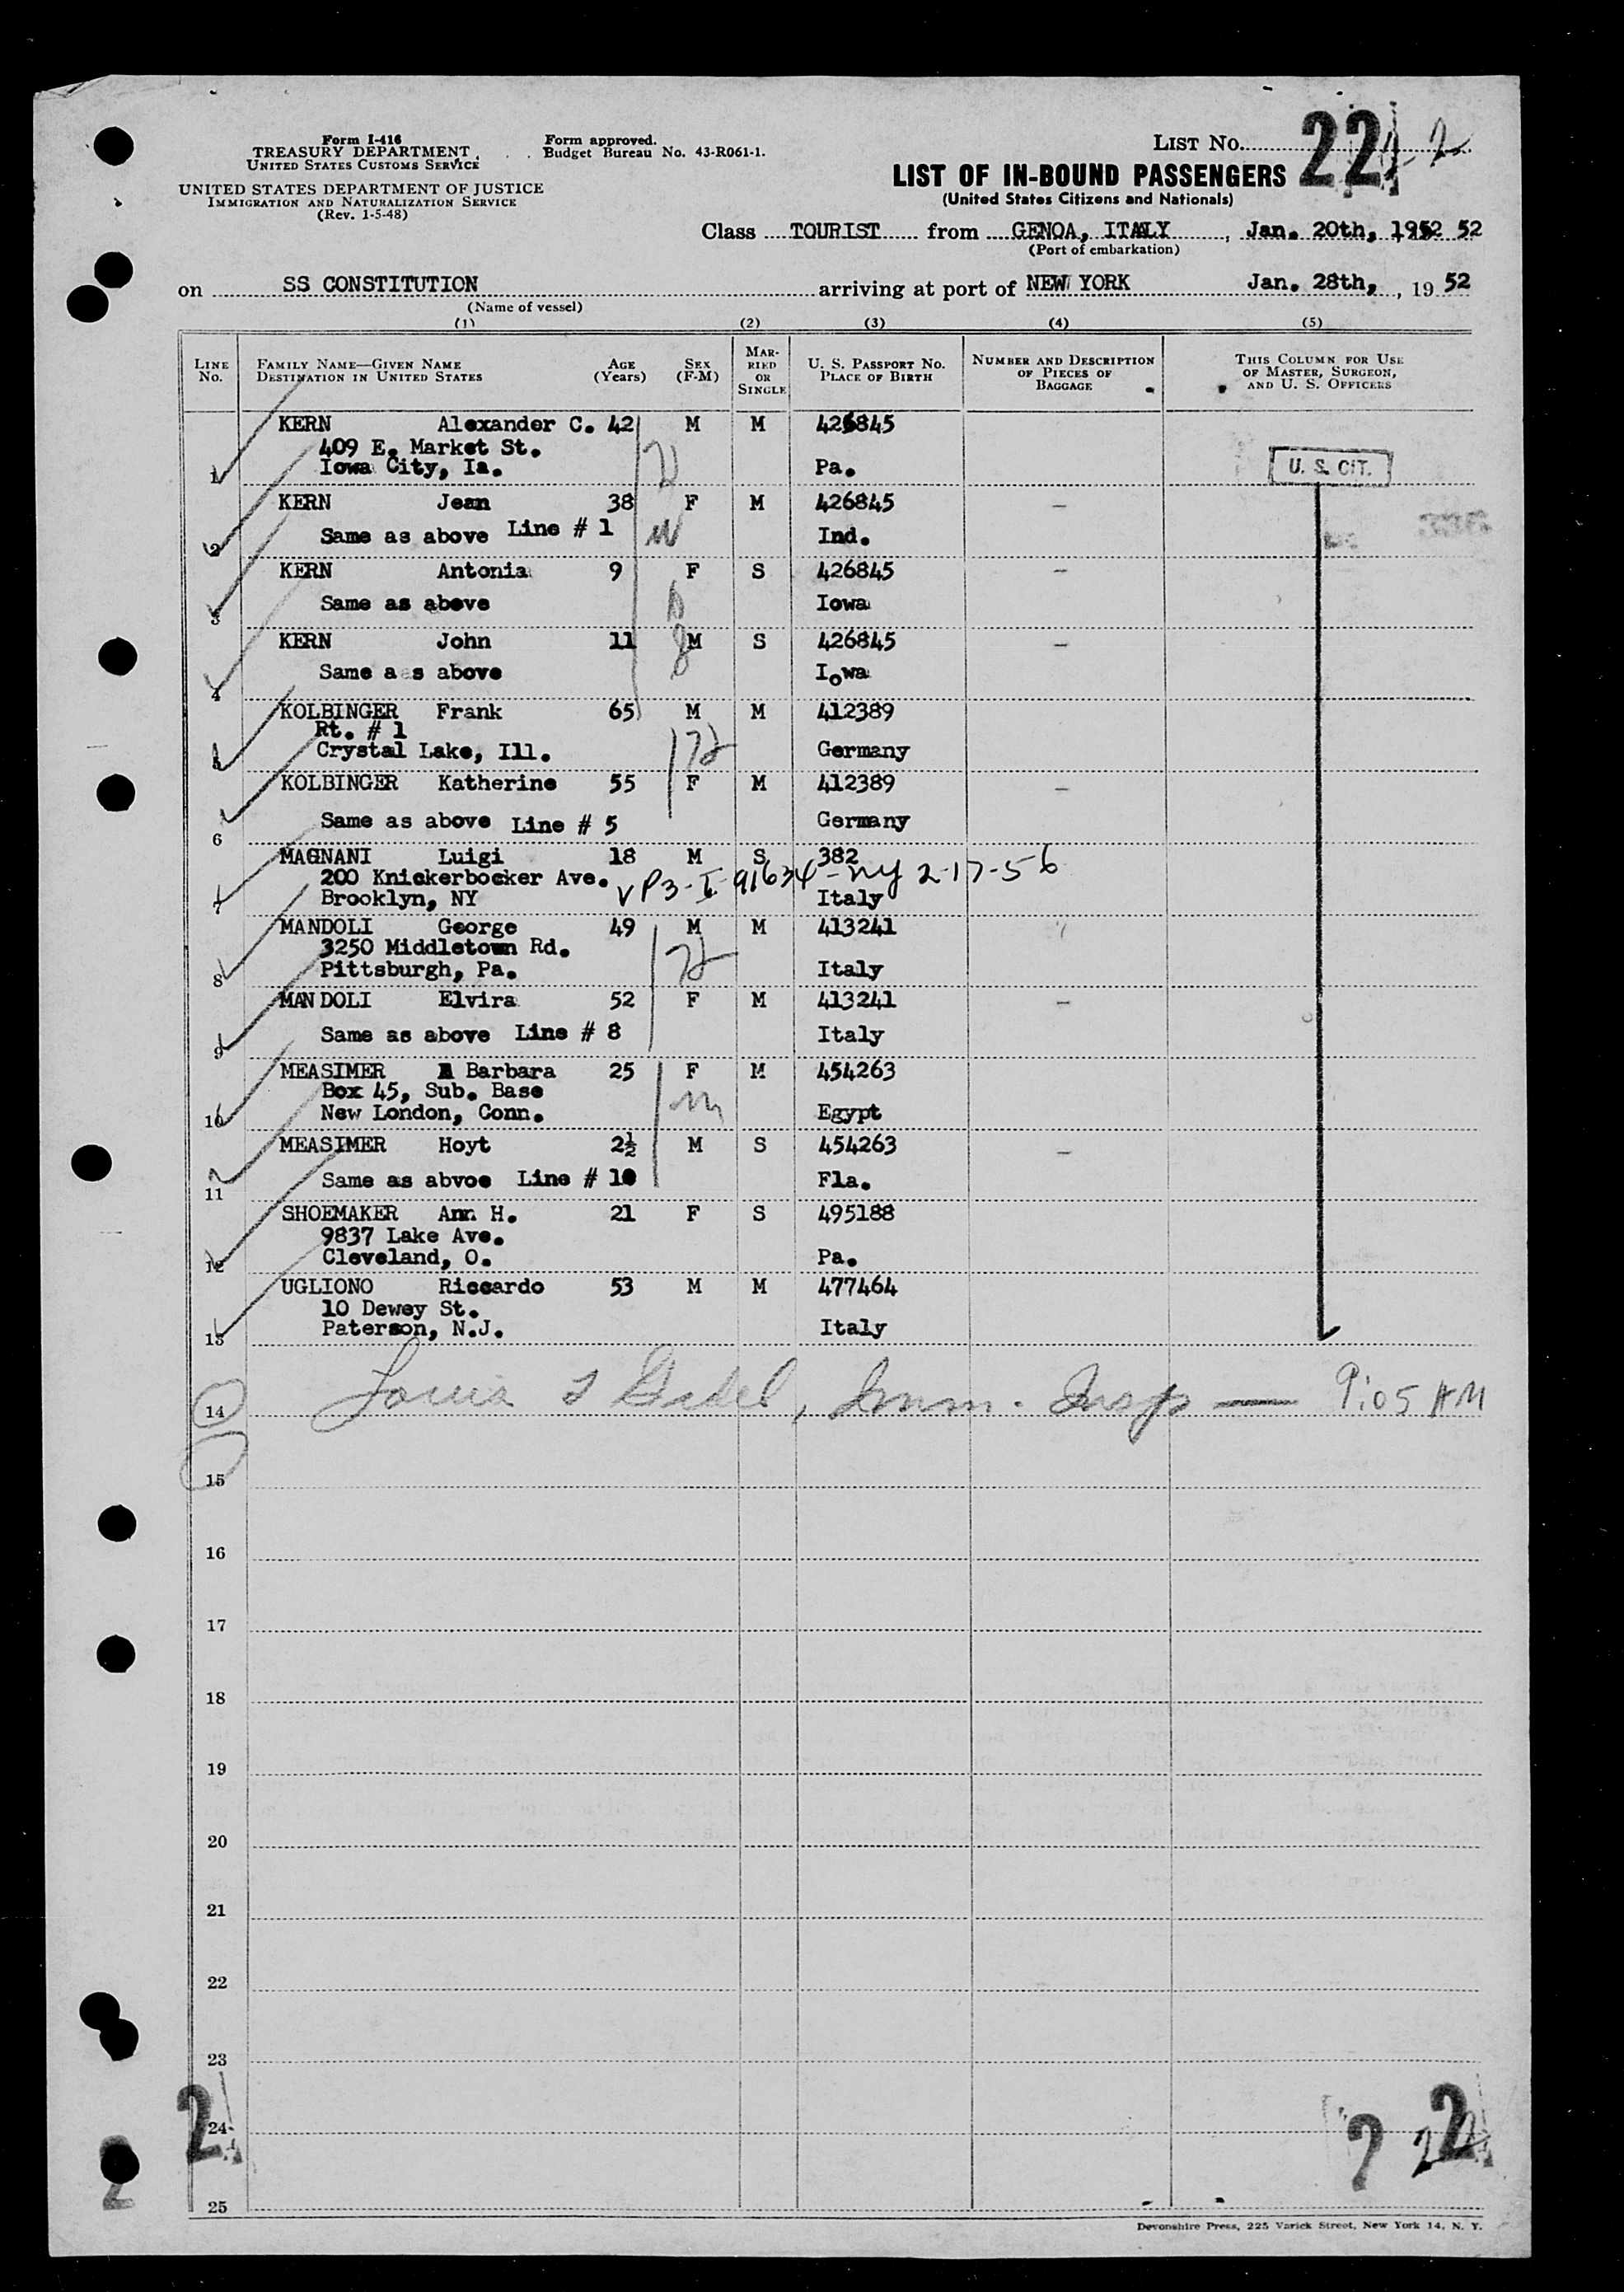 Form I-416
TREASURY DEPARTMENT
UNITED STATES CUSTOMS SERVICE
UNITED STATES DEPARTMENT OF JUSTICE
IMMIGRATION AND NATURALIZATION SERVICE
(Rev. 1-5-48)
Form approved.
Budget Bureau No. 43-R061-1.
LIST No. 22
LIST OF IN-BOUND PASSENGERS
(United States Citizens and Nationals)
Class TOURIST from GENOA, ITALY, Jan. 20th, 1952 52
(Port of embarkation)
on SS CONSTITUTION arriving at port of NEW YORK Jan. 28th, , 19 52
(Name of vessel)
(1) (2) (3) (4) (5)
LINE No. FAMILY NAME—GIVEN NAME DESTINATION IN UNITED STATES AGE (Years) SEX (F-M) MARRIED OR SINGLE U. S. PASSPORT No. PLACE OF BIRTH NUMBER AND DESCRIPTION OF PIECES OF BAGGAGE THIS COLUMN FOR USE OF MASTER, SURGEON, AND U. S. OFFICERS
KERN Alexander C. 42 M M 426845
409 E. Market St.
1 Iowa City, Ia. Pa. U. S. CIT.
KERN Jean 38 F M 426845 —
2 Same as above Line # 1 Ind.
KERN Antonia 9 F S 426845 —
3 Same as above Iowa
KERN John 11 M S 426845 —
4 Same a s above Iowa
KOLBINGER Frank 65 M M 412389
Rt. # 1
5 Crystal Lake, Ill. Germany
KOLBINGER Katherine 55 F M 412389 —
6 Same as above Line # 5 Germany
MAGNANI Luigi 18 M S 382
200 Knickerbocker Ave. VP3-I-91634-NY 2-17-56
7 Brooklyn, NY Italy
MANDOLI George 49 M M 413241
3250 Middletown Rd.
8 Pittsburgh, Pa. Italy
MAN DOLI Elvira 52 F M 413241 —
9 Same as above Line # 8 Italy
MEASIMER Barbara 25 F M 454263
Box 45, Sub. Base
10 New London, Conn. Egypt
MEASIMER Hoyt 2½ M S 454263 —
11 Same as abvoe Line # 10 Fla.
SHOEMAKER Ann H. 21 F S 495188
9837 Lake Ave.
12 Cleveland, O. Pa.
UGLIONO Riccardo 53 M M 477464
10 Dewey St.
13 Paterson, N.J. Italy
14 Imm. Insp — 9:05 AM
15
16
17
18
19
20
21
22
23
24
25
2
2
Devonshire Press, 225 Varick Street, New York 14, N. Y.